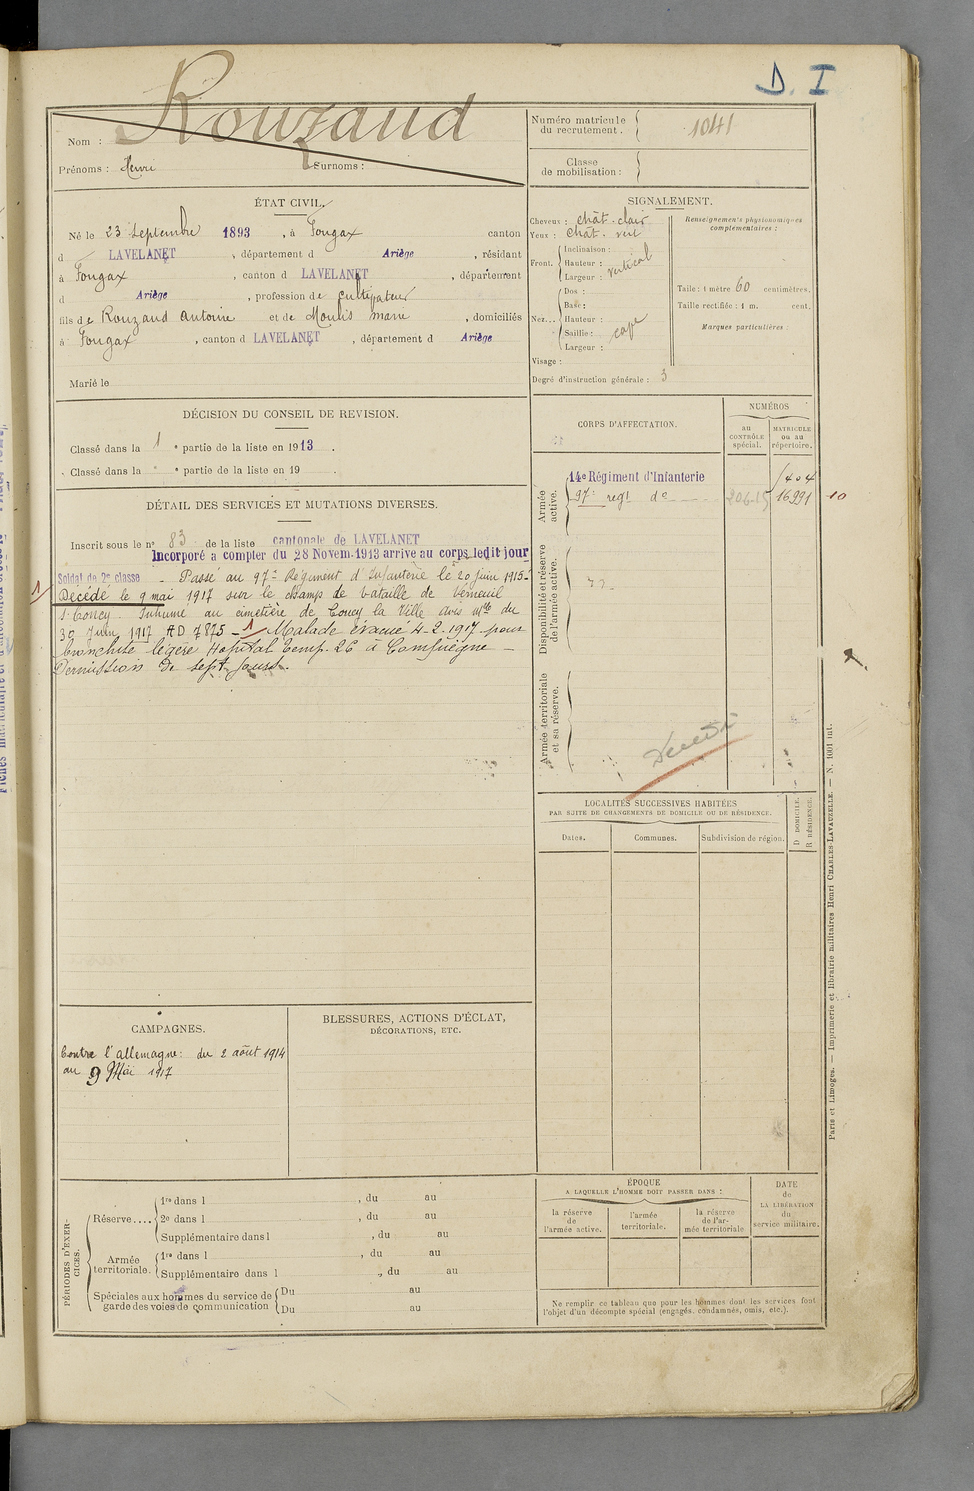 D. I
Rouzaud
Nom :
Prénoms : Henri Surnoms :
Numéro matricule
du recrutement. 1041
Classe
de mobilisation :
ÉTAT CIVIL.
Né le 23 Septembre 1893, à Fougax canton
d LAVELANET, département d Ariège, résidant
à Fougax, canton d LAVELANET, département
d Ariège, profession de cultivateur
fils de Rouzaud Antoine et de Moulis Marie, domiciliés
à Fougax, canton d LAVELANET, département d Ariège
Marié le
SIGNALEMENT.
Cheveux : chât. clair
Yeux : chât. vert
Front. Inclinaison :
Hauteur : vertical
Largeur :
Nez... Dos :
Base :
Hauteur :
Saillie : cave
Largeur :
Visage :
Degré d'instruction générale : 3
Renseignements physionomiques
complémentaires :
Taille : 1 mètre 60 centimètres.
Taille rectifiée : 1 m. cent.
Marques particulières
DÉCISION DU CONSEIL DE REVISION.
Classé dans la 1 e partie de la liste en 1913.
Classé dans la e partie de la liste en 19 .
DÉTAIL DES SERVICES ET MUTATIONS DIVERSES.
Inscrit sous le no 83 de la liste cantonale de LAVELANET
Incorporé a compter du 28 Novem. 1913 arrive au corps ledit jour
Soldat de 2e classe - Passé au 97e Régiment d'Infanterie le 20 juin 1915-
1/ Décédé le 9 mai 1917 sur le champs de bataille de Verneuil
s/ Coucy Inhumé au cimetière de Coucy la Ville avis mle du
30 Juin 1917 AD 7875 - 1/ Malade évacué 4-2-1917 pour
bronchite légère Hopital temp. 26 à Compiègne -
Permission de sept jours.
CORPS D'AFFECTATION.
NUMÉROS
au
CONTRÔLE
spécial.
MATRICULE
ou au
répertoire.
Armée
active.
14e Régiment d'Infanterie 1404
97e regt do 206-15 16991 10
Disponibilité et réserve
de l'armée active.
Armée territoriale
et sa réserve.
Décédé
LOCALITÉS SUCCESSIVES HABITÉES
PAR SUITE DE CHANGEMENTS DE DOMICILE OU DE RÉSIDENCE.
Dates. Communes. Subdivision de région.
D DOMICILE.
R RÉSIDENCE.
CAMPAGNES.
Contre l'allemagne : du 2 août 1914
au 9 Mai 1917
BLESSURES, ACTIONS D'ÉCLAT,
DÉCORATIONS, ETC.
PÉRIODES D'EXER-
CICES.
Réserve....
1re dans l , du au
2e dans l , du au
Supplémentaire dans l , du au
Armée
territoriale.
1re dans l , du au
Supplémentaire dans l , du au
Spéciales aux hommes du service de
garde des voies de communication
Du au
Du au
ÉPOQUE
A LAQUELLE L'HOMME DOIT PASSER DANS :
la réserve
de
l'armée active.
l'armée
territoriale.
la réserve
de l'ar-
mée territoriale
DATE
de
LA LIBÉRATION
du
service militaire.
Ne remplir ce tableau que pour les hommes dont les services font
l'objet d'un décompte spécial (engagés, condamnés, omis, etc.).
Paris et Limoges. — Imprimerie et librairie militaires Henri CHARLES-LAVAUZELLE. — N. 1001 int.